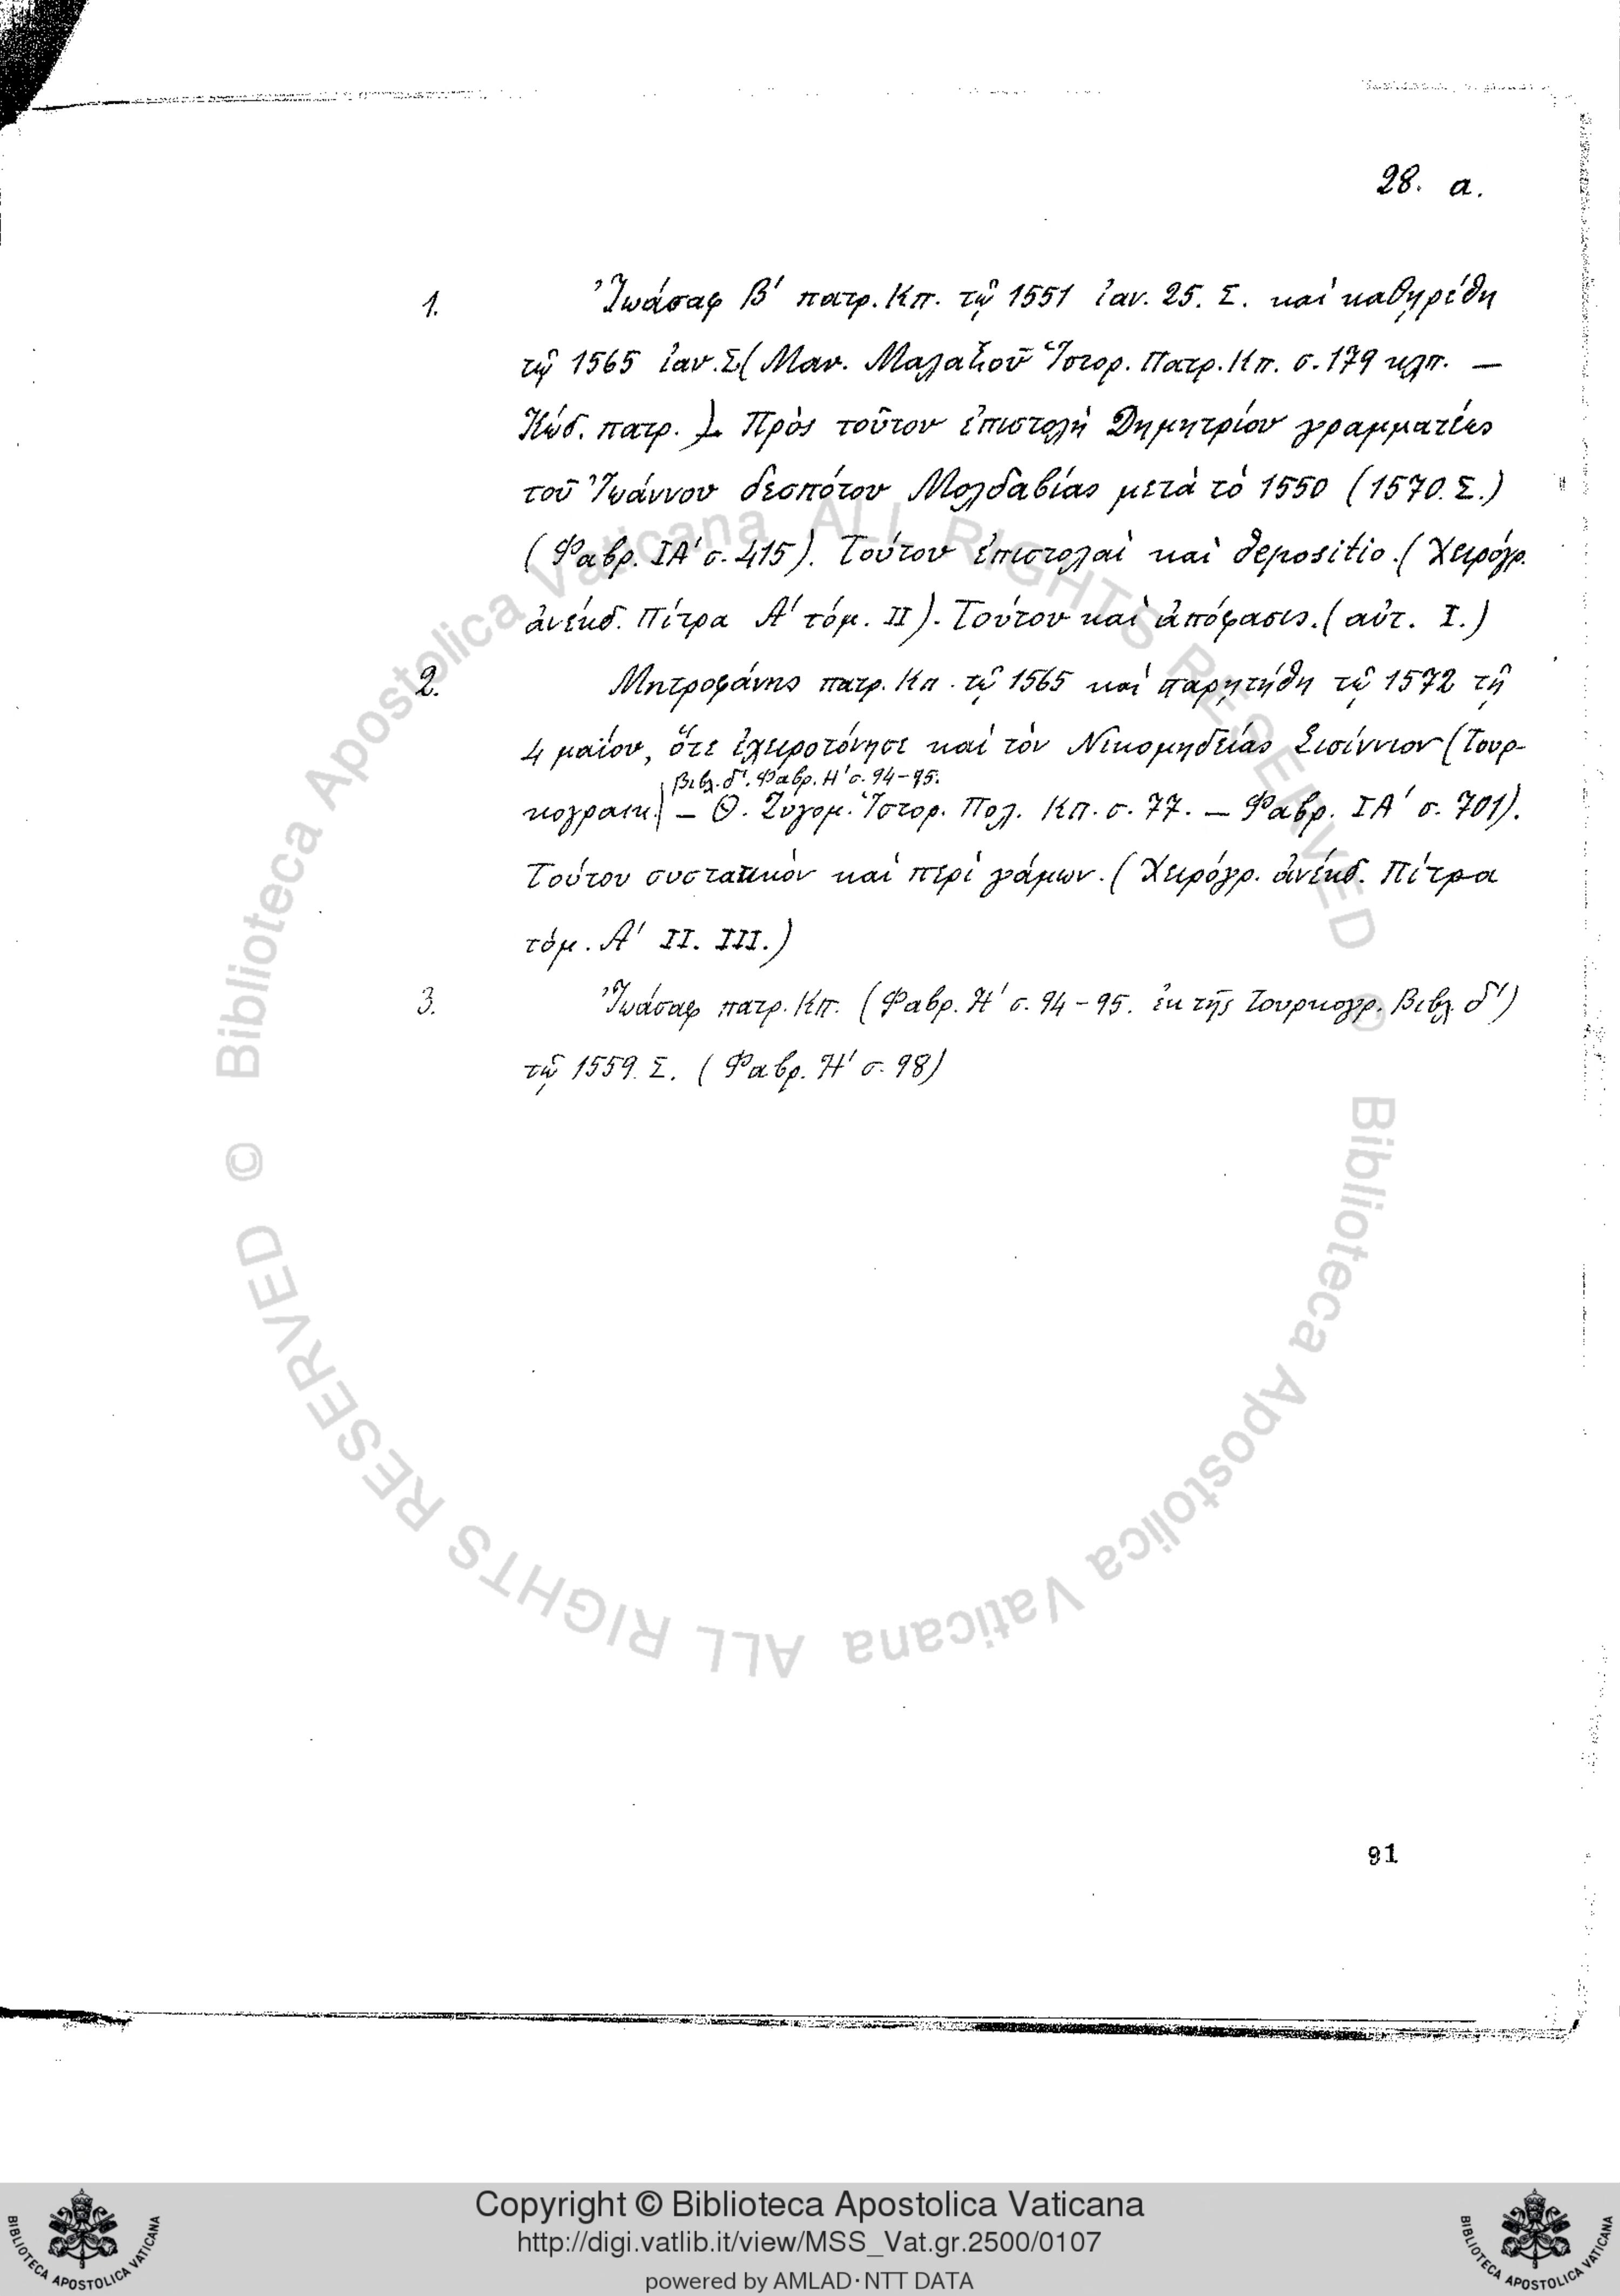 28. α.
1. Ἰωάσαφ Β' πατρ. Κπ. τῷ 1551 ἰαν. 25. Σ. καὶ καθῃρέθη
τῷ 1565 ἰαν. Σ. (Μαν. Μαλαξοῦ Ἱστορ. Πατρ. Κπ. σ. 179 κλπ. —
Κώδ. πατρ.). Πρὸς τοῦτον ἐπιστολὴ Δημητρίου γραμματέως
τοῦ Ἰωάννου δεσπότου Μολδαβίας μετὰ τὸ 1550 (1570. Σ.)
(Φαβρ. ΙΑ' σ. 415). Τούτου ἐπιστολαὶ καὶ depositio. (Χειρόγρ.
ἀνέκδ. Πίτρα Α' τόμ. II). Τούτου καὶ ἀπόφασις. (αὐτ. I.)
2. Μητροφάνης πατρ. Κπ. τῷ 1565 καὶ παρῃτήθη τῷ 1572 τῇ
4 μαΐου, ὅτε ἐχειροτόνησε καὶ τὸν Νικομηδείας Σισίννιον (Τουρ-
βιβλ. δ'. Φαβρ. Η' σ. 94-95.
κογραικ. — Θ. Ζυγομ. Ἱστορ. Πολ. Κπ. σ. 77. — Φαβρ. ΙΑ' σ. 701).
Τούτου συστατικὸν καὶ περὶ γάμων. (Χειρόγρ. ἀνέκδ. Πίτρα
τόμ. Α' II. III.)
3. Ἰωάσαφ πατρ. Κπ. (Φαβρ. Η' σ. 94-95. ἐκ τῆς Τουρκογρ. Βιβλ. δ')
τῷ 1559. Σ. (Φαβρ. Η' σ. 98)
91
© Biblioteca Apostolica Vaticana ALL RIGHTS RESERVED
© Biblioteca Apostolica Vaticana ALL RIGHTS RESERVED
BIBLIOTECA APOSTOLICA VATICANA
Copyright © Biblioteca Apostolica Vaticana
http://digi.vatlib.it/view/MSS_Vat.gr.2500/0107
powered by AMLAD·NTT DATA
BIBLIOTECA APOSTOLICA VATICANA